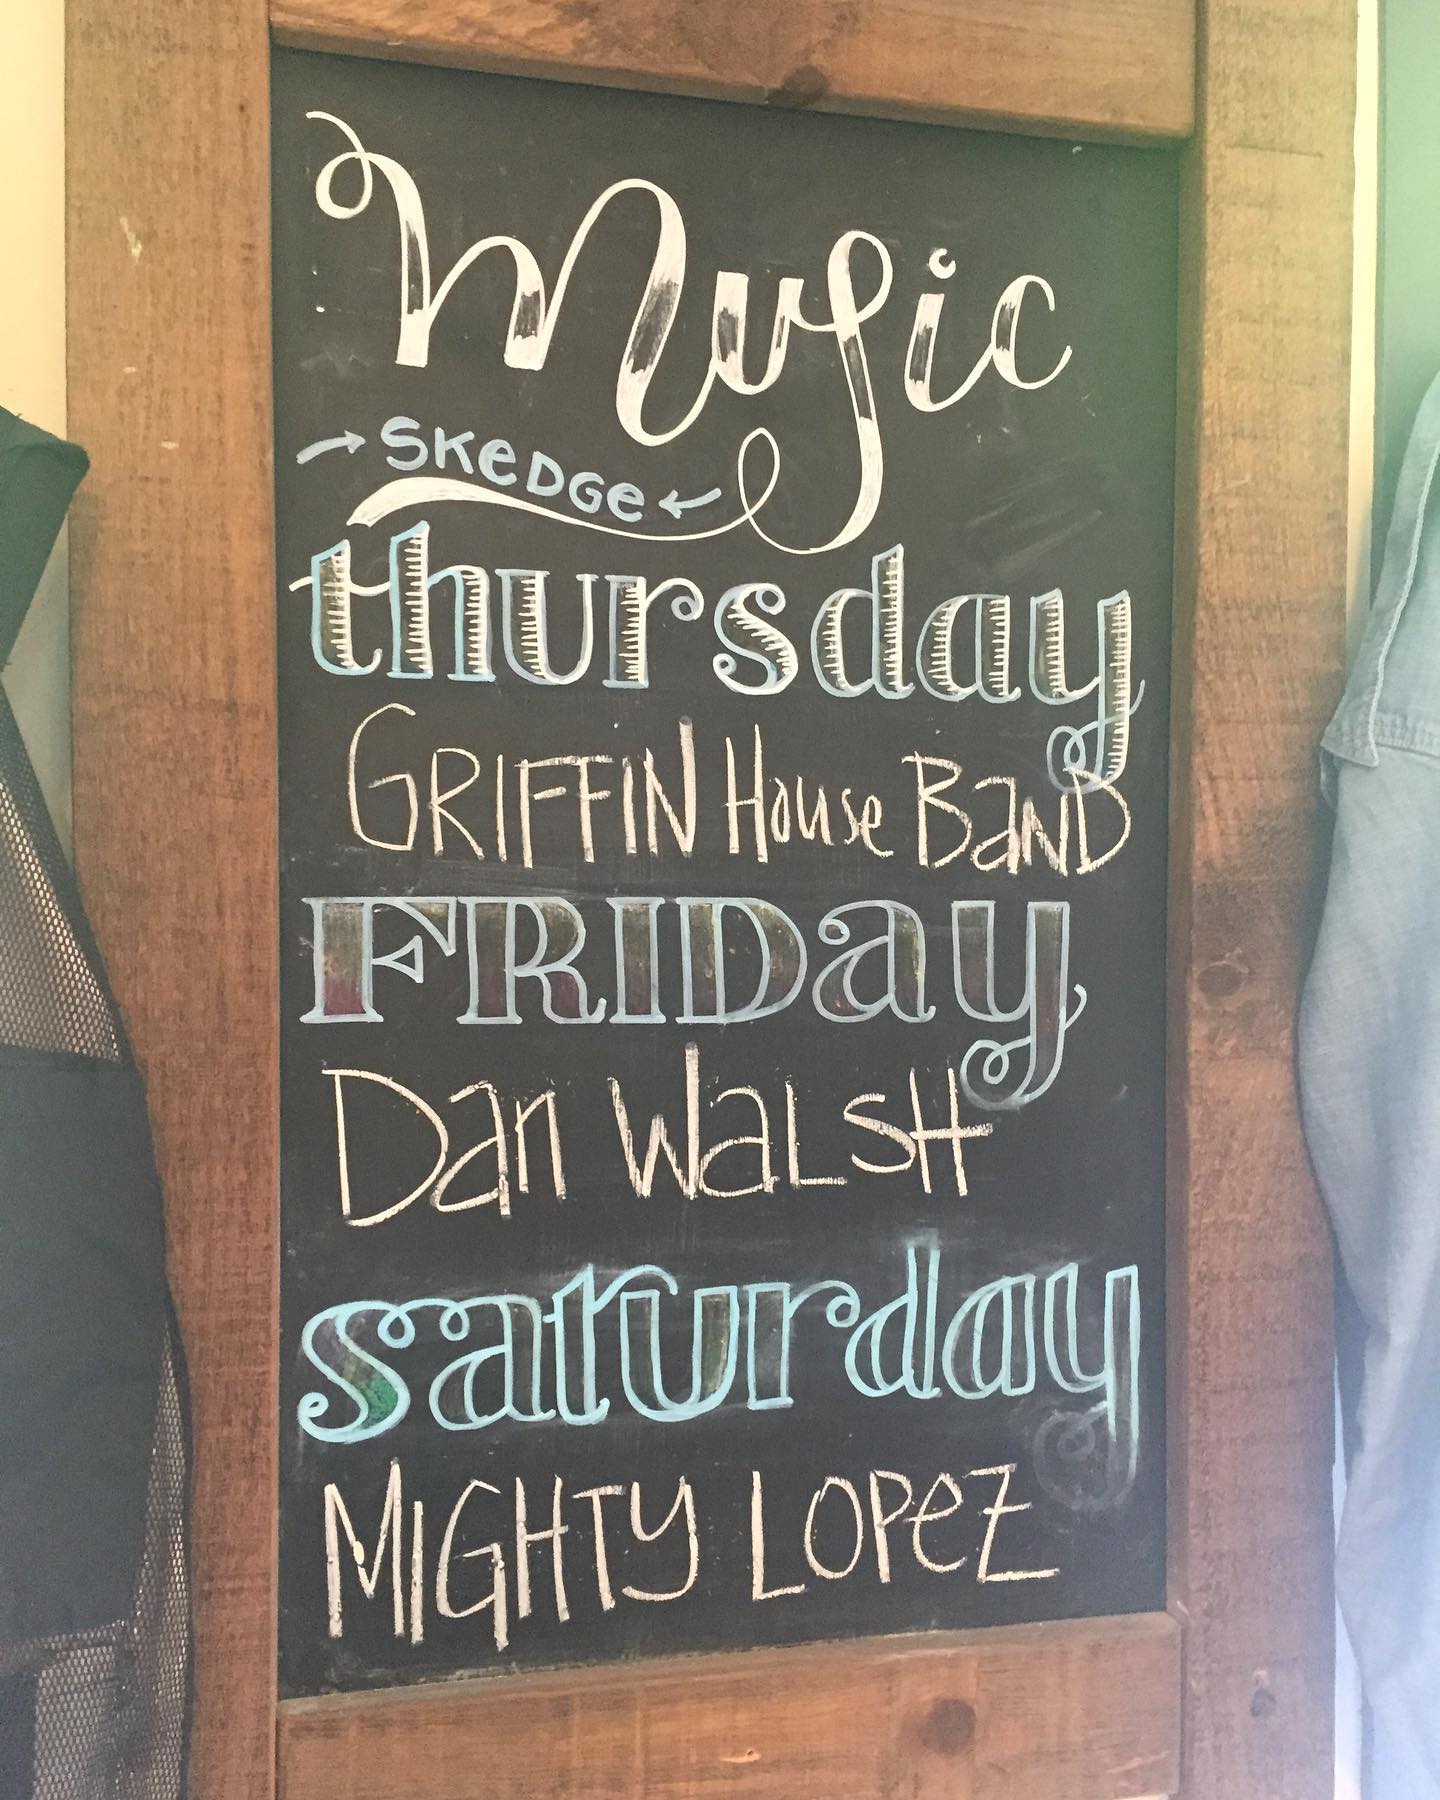 Music
→ SKeDGe ←
thursday
GRIFFIN House BaND
FRIDay
Dan WaLsH
saturday
MIGHTy LOPeZ